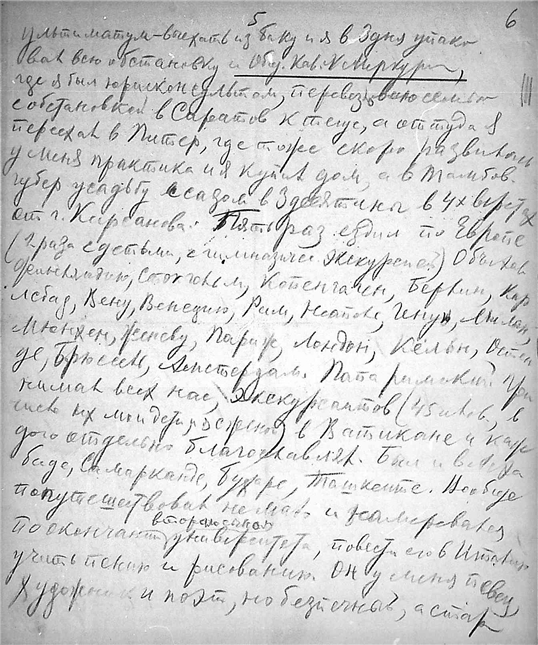 5 6
ультиматум-выехать из Баку и я в 3 дня упако
вал всю обстановку и Общ. Кав. и Меркурий,
где я был юрисконсультом, перевез всю семью
с обстановкой в Саратов к теще, а оттуда я
переехал в Питер, где тоже скоро развилась
у меня практика и я купил дом, а в Тамбов.
губер усадьбу с садом в 3 десятины в 4х верстах
от г. Кирсанова. Пять раз ездил по Европе
(2 раза с детьми, с гимназич экскурсией) Объехав
Финляндию, Стокгольм, Копенгаген, Берлин, Кар
лсбад, Вену, Венецию, Рим, Неаполь, Геную, Милан,
Мюнхен, Женеву, Париж, Лондон, Кельн, Остен
де, Брюссель, Амстердам. Папа римский при
нимал всех нас, экскурсантов (45 человек, в
числе их мои дети и я с женою) в Ватикане и каж
дого отдельно благославлял. Был и в
баде, Самарканде, Бухаре, Ташкенте. Вообще
попутешествовал не мало и намеревался
по окончании вторым сыном университета, повезти его в Италию
учить пению и рисованию. Он у меня певец,
художник и поэт, но безпечный, а стар